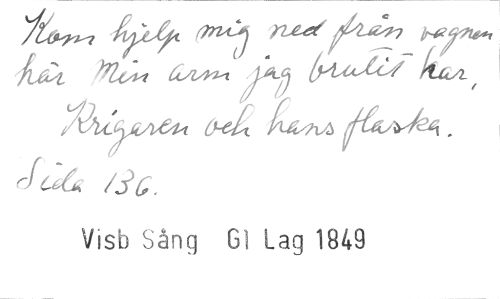 Kom hjelp mig ned från vagnen
här Min arm jag brutit har,
Krigaren och hans flaska.
Sida 136.
Visb Sång Gl Lag 1849